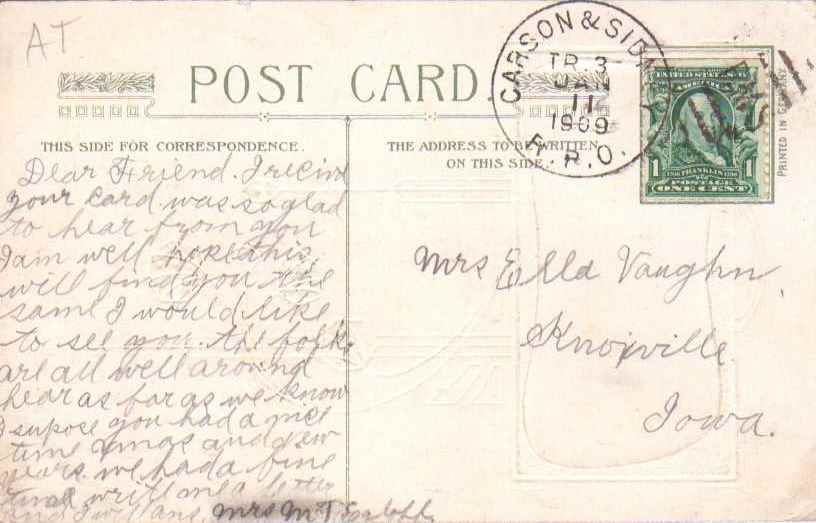 AT
POST CARD
CARSON & SID
TR. 3
JAN
11
1909
R.P.O.
RMS
UNITED STATES OF
AMERICA
1 FRANKLIN 1
POSTAGE
ONE CENT
PRINTED IN GERMANY
THIS SIDE FOR CORRESPONDENCE.
THE ADDRESS TO BE WRITTEN
ON THIS SIDE.
Dear Friend. I recived
your card was so glad
to hear from you
I am well hope this
will find you the
same I would like
to see you. the folks
are all well around
hear as far as we know
I supose you had a nice
time xmas and new
years. we had a fine
time write me a letter
and I will ans. Mrs M T
Mrs Ella Vaughn
Knoxville
Iowa.